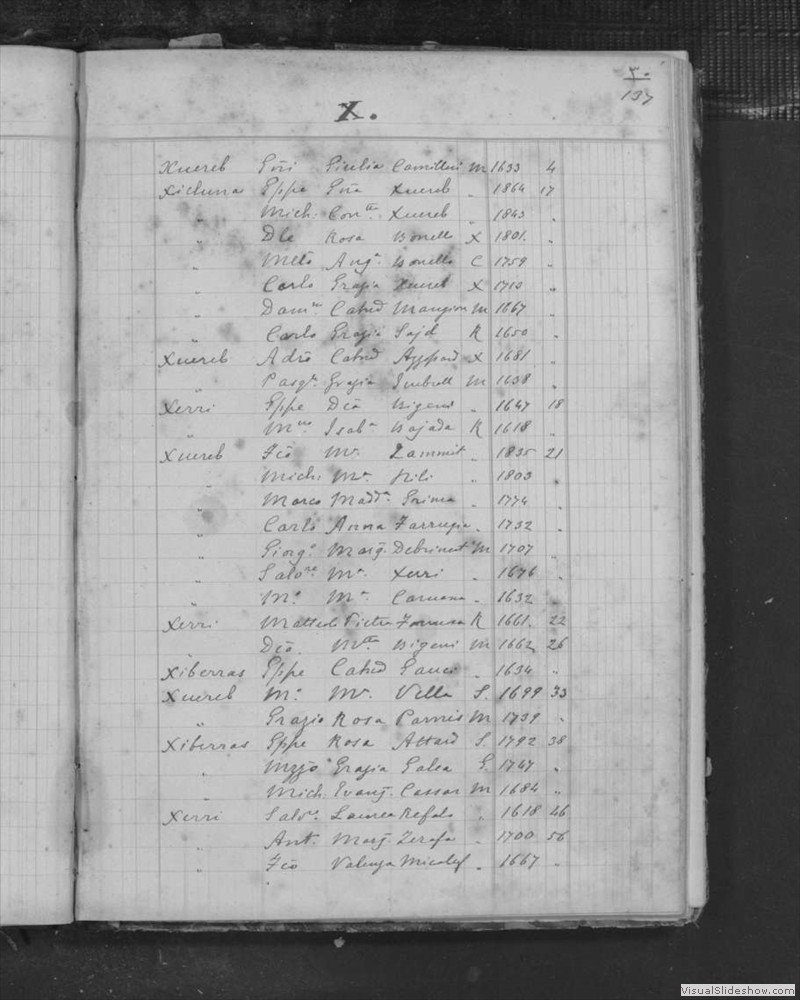 137
X.
Xuereb Gñi Sicilia Camilleri M 1633 4
Xicluna Eppe Gña Xuereb „ 1864 17
„ Mich. Con.tta Xuereb „ 1843 „
„ Dte Rosa Bonello X 1801. „
„ Mtto Ang.a Bonello C 1759 „
„ Carlo Grazia Xuereb X 1713 „
„ Catnd Mangion M 1667 „
„ Carlo Grazia Sajd R 1650 „
Xuereb Adrõ Catnd Azzpard X 1681 „
„ Pasq.e Grazia M 1638 „
Xerri Eppe Dca Bigeni „ 1647 18
„ Isab.a Bajada R 1618 „
Xuereb Fcõ M.a Zammit „ 1835 21
„ Mich. M.a „ 1803 „
„ Marco Madd.a Grima „ 1774 „
„ Carlo Anna Farrugia „ 1732 „
„ Giorg.o Marg. Debrincat M 1707 „
„ Salv.re M.a Xerri „ 1676 „
„ M.o M.a Caruana „ 1632 „
Xerri Matteo Pietra R 1661. 22
„ Dcõ. Bigeni M 1662 26
Xiberras Eppe Catnd Gauci „ 1634 „
Xuereb M.o M.a Vella S. 1699 33
„ Grazio Rosa Camis M 1739 „
Xiberras Eppe Rosa Attard S. 1792 38
„ Grazia Galea S. 1747 „
„ Mich. Evang. Cassar M 1684 „
Xerri Salv.e Laurea Refalo „ 1618 46
„ Ant. Marg. Zerafa „ 1700 56
„ Fcõ Valenza Micalef „ 1667 „
VisualSlideshow.com